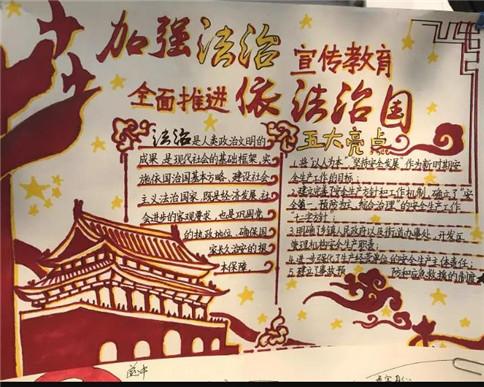 加强法治 宣传教育
全面推进 依法治国
法治是人类政治文明的
成果 是现代社会的基础框架 实
施依国治国基本方略 建设社会
主义法治国家 既是经济发展 社
会进步的客观要求 也是巩固党
的执政地位 确保国
家长久治安的根
本保障
五大亮点
1.进"以人为本"坚持安全发展"作为新时期安
全生产工作的目标;
2.建立完善了安全生产方针和工作机制,确立了"安
全第一 预防为主 综合治理"的安全生产工作
"七字方针;
3.明确了乡镇人民政府以及街道办事处、开发区
管理机构安全生产职责;
4.进一步强化了生产经营单位的安全生产主体责任;
5.建立了事故预防和应急救援的制度